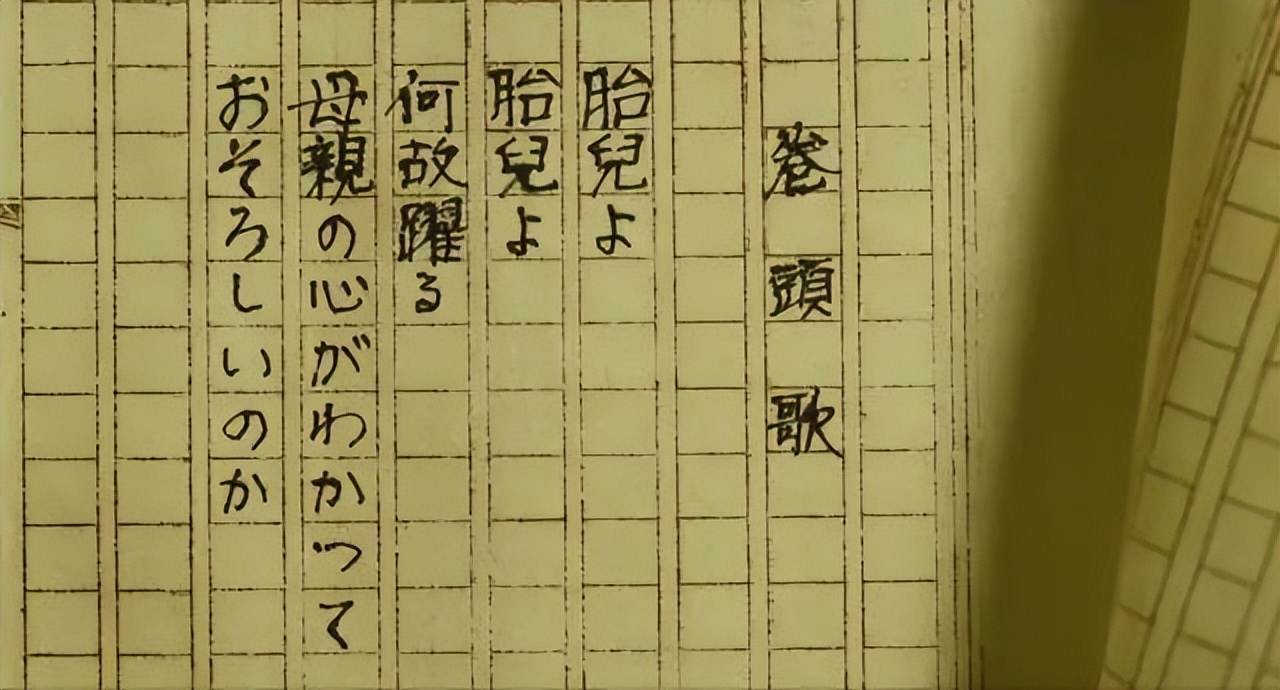 卷頭歌
胎兒よ
胎兒よ
何故躍る
母親の心がわかって
おそろしいのか